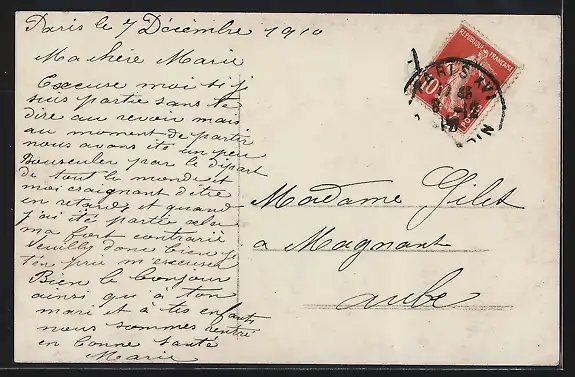 Paris le 7 Décembre 1910
Ma chère Marie
Excuse moi si j
suis partie sans te
dire au revoir mais
au moment de partir
nous avons ite un peu
Bousculer par le dipart
de tout le monde et
moi craignant d'être
en retard et quand
j'ai été partie cela
ma fort contrarie
veuills donc bien je
t'en prie m'excuser
Bien le bonjour
ainsi qu a ton
mari et à tes enfants
nous sommes rentré
en bonne santé
Marie
REPUBLIQUE FRANÇAISE
10
POSTES
PARIS XVI
8 - 12
Madame Gilet
a Magnant
aube